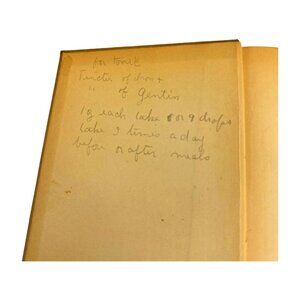 for tonic
Tincter of Iron +
" of Gentin
1 oz each take 8 or 9 drops
take 3 times a day
befor or after meals